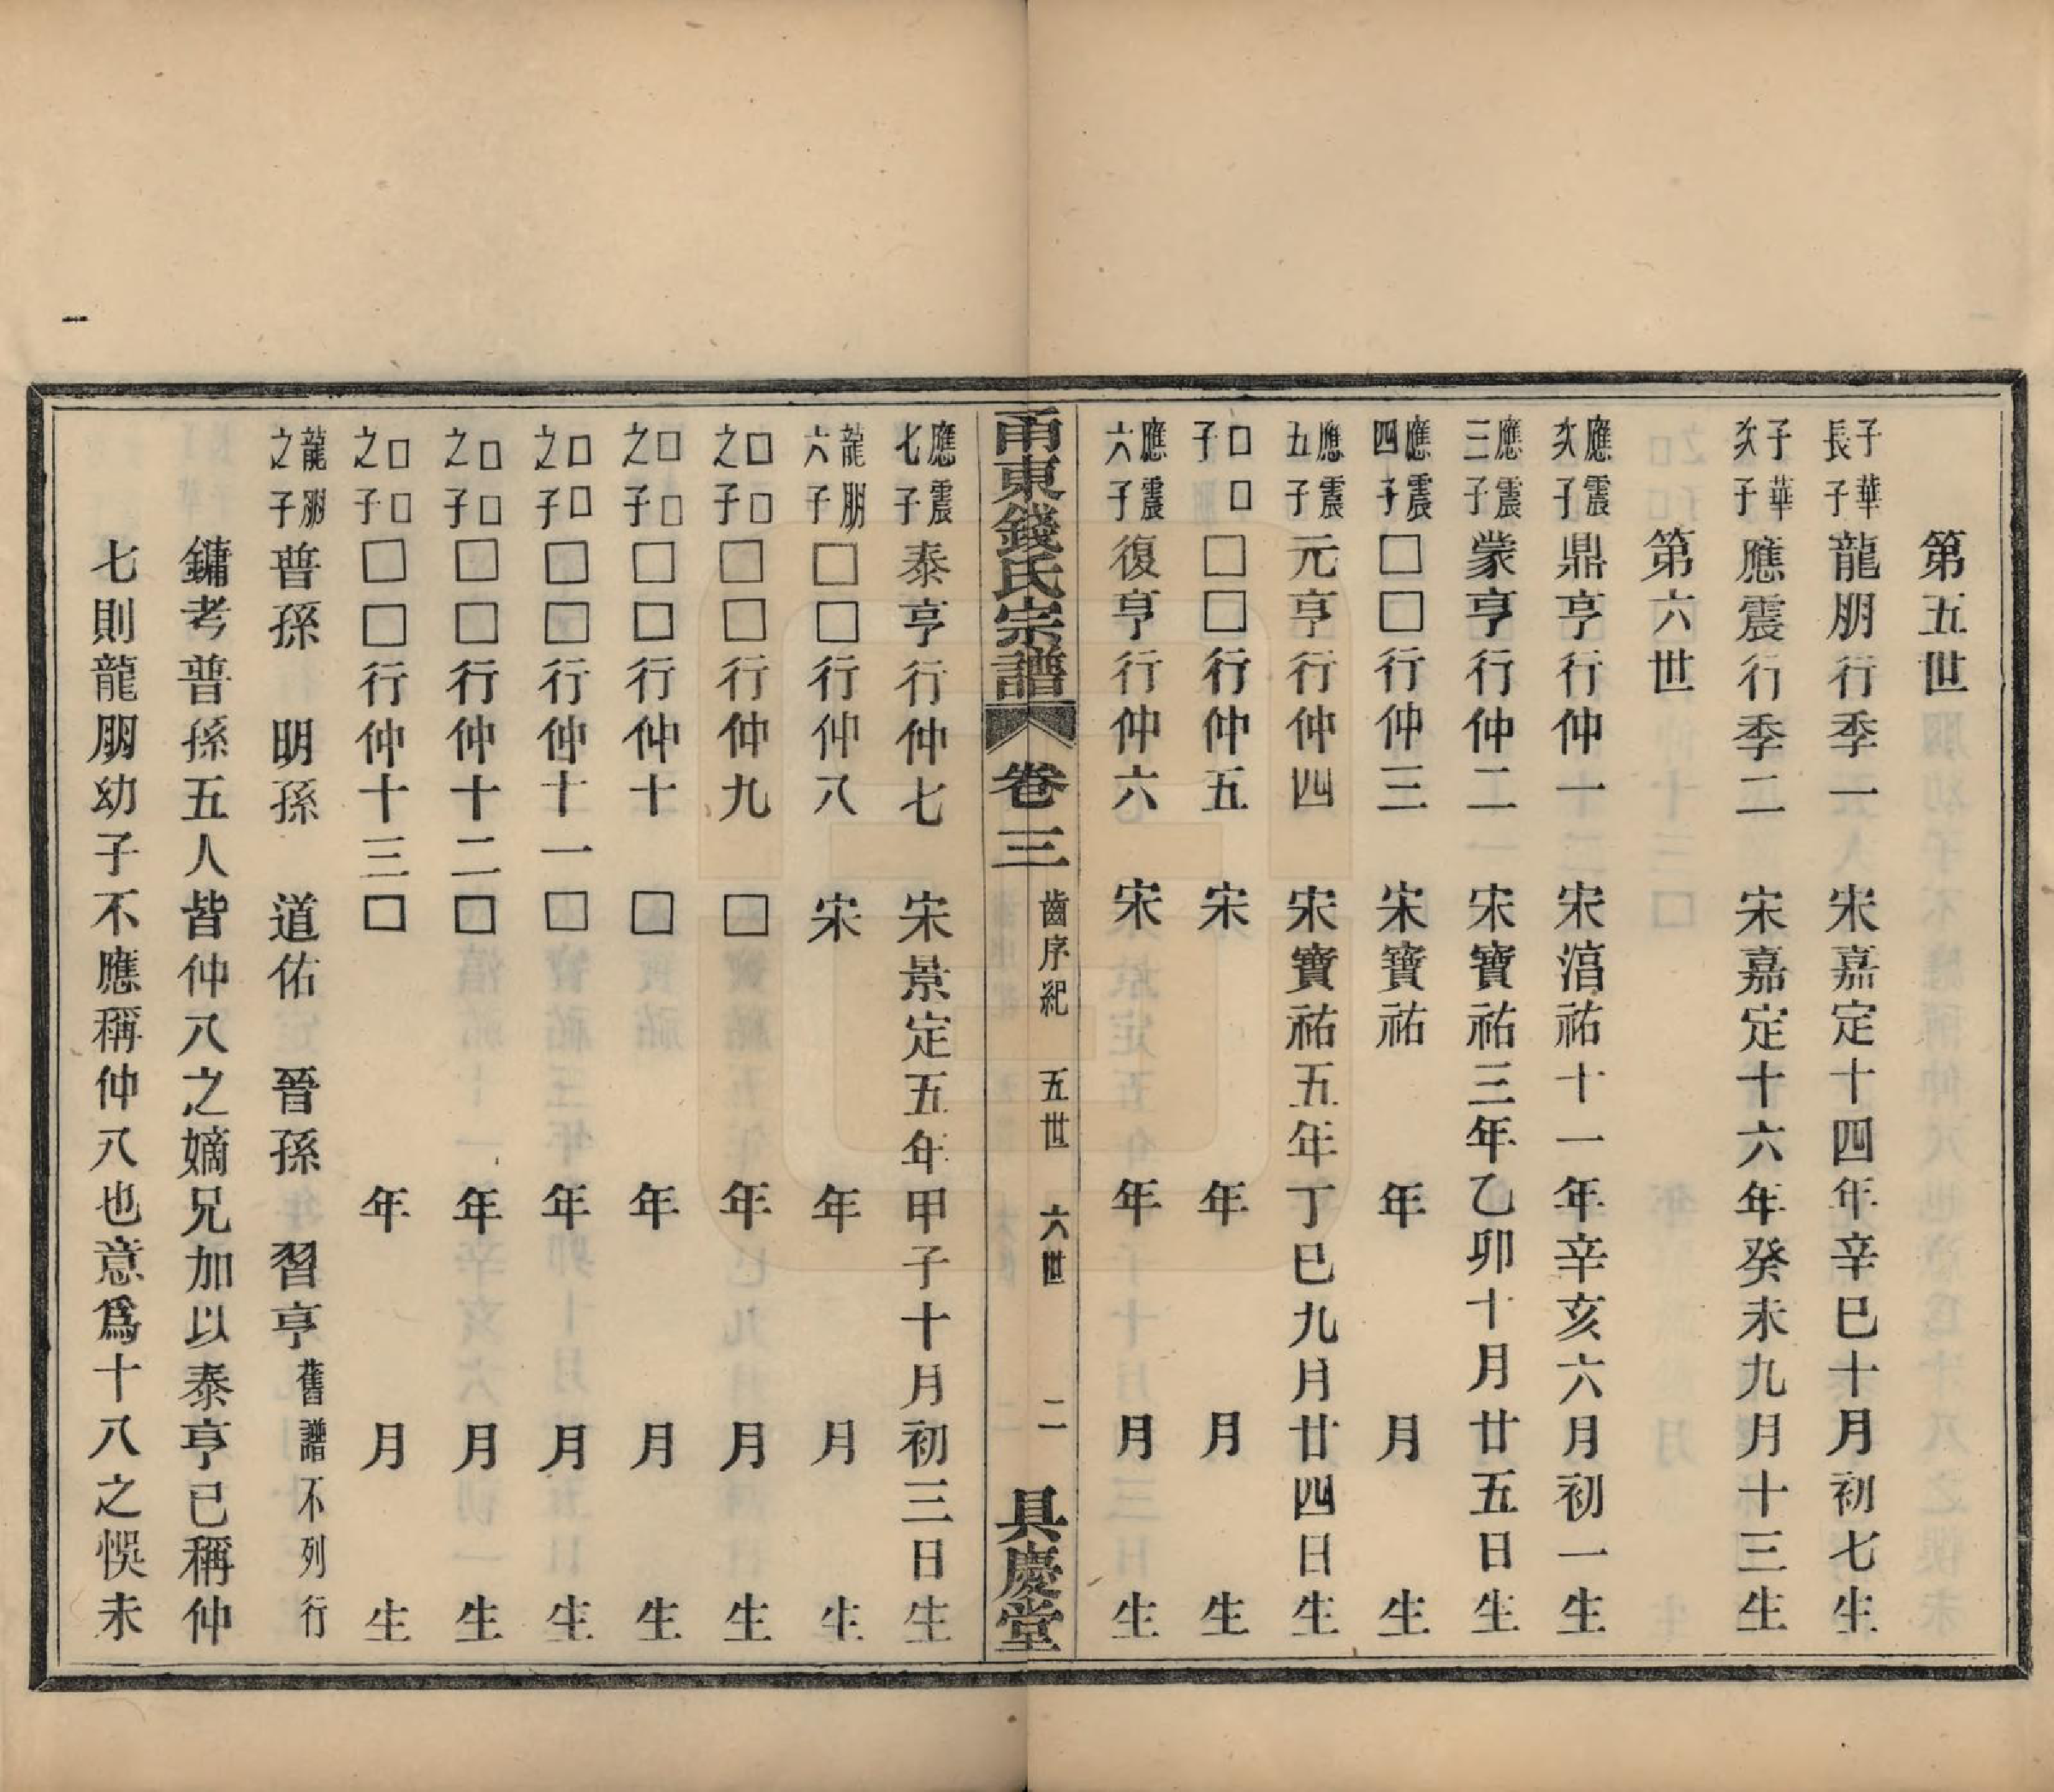 第五世
子華長子龍朋行季一　宋嘉定十四年辛巳十月初七生
子華次子應震行季二　宋嘉定十六年癸未九月十三生
第六世
應震次子鼎亨行仲一　宋淯祐十一年辛亥六月初一生
應震三子蒙亨行仲二　宋寶祐三年乙卯十月廿五日生
應震四子□□行仲三　宋寶祐　年　月　生
應震五子元亨行仲四　宋寶祐五年丁巳九月廿四日生
□□子□□行仲五　宋　年　月　生
應震六子復亨行仲六　宋　年　月　生
甬東錢氏宗譜　卷三　齒序紀　五世　六世　二　具慶堂
應震七子泰亨行仲七　宋景定五年甲子十月初三日生
龍朋六子□□行仲八　宋　年　月　生
□□之子□□行仲九　□　年　月　生
□□之子□□行仲十　□　年　月　生
□□之子□□行仲十一　□　年　月　生
□□之子□□行仲十二　□　年　月　生
□□之子□□行仲十三　□　年　月　生
龍朋之子普孫　明孫　道佑　晉孫　習亨舊譜不列行
鏞考普孫五人皆仲八之嫡兄加以泰亨已稱仲
七則龍朋幼子不應稱仲八也意爲十八之悞未